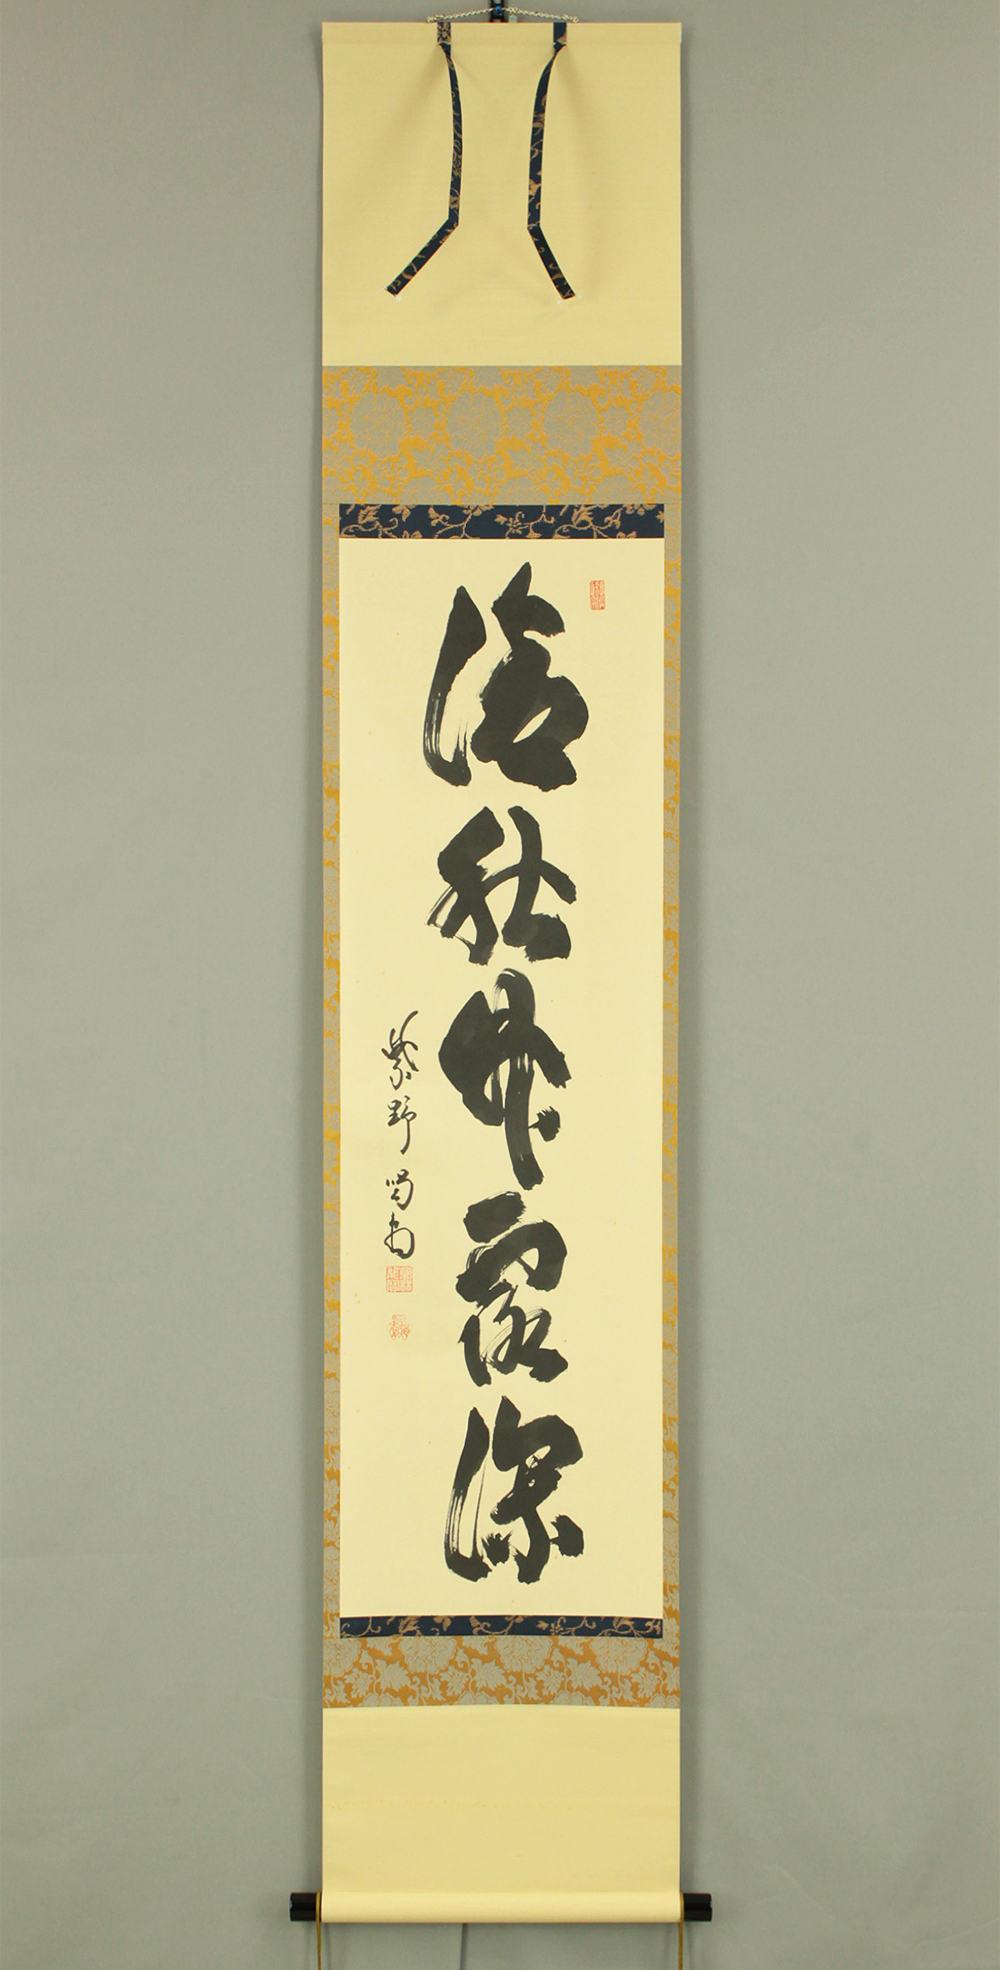 清秋竹露深
紫野